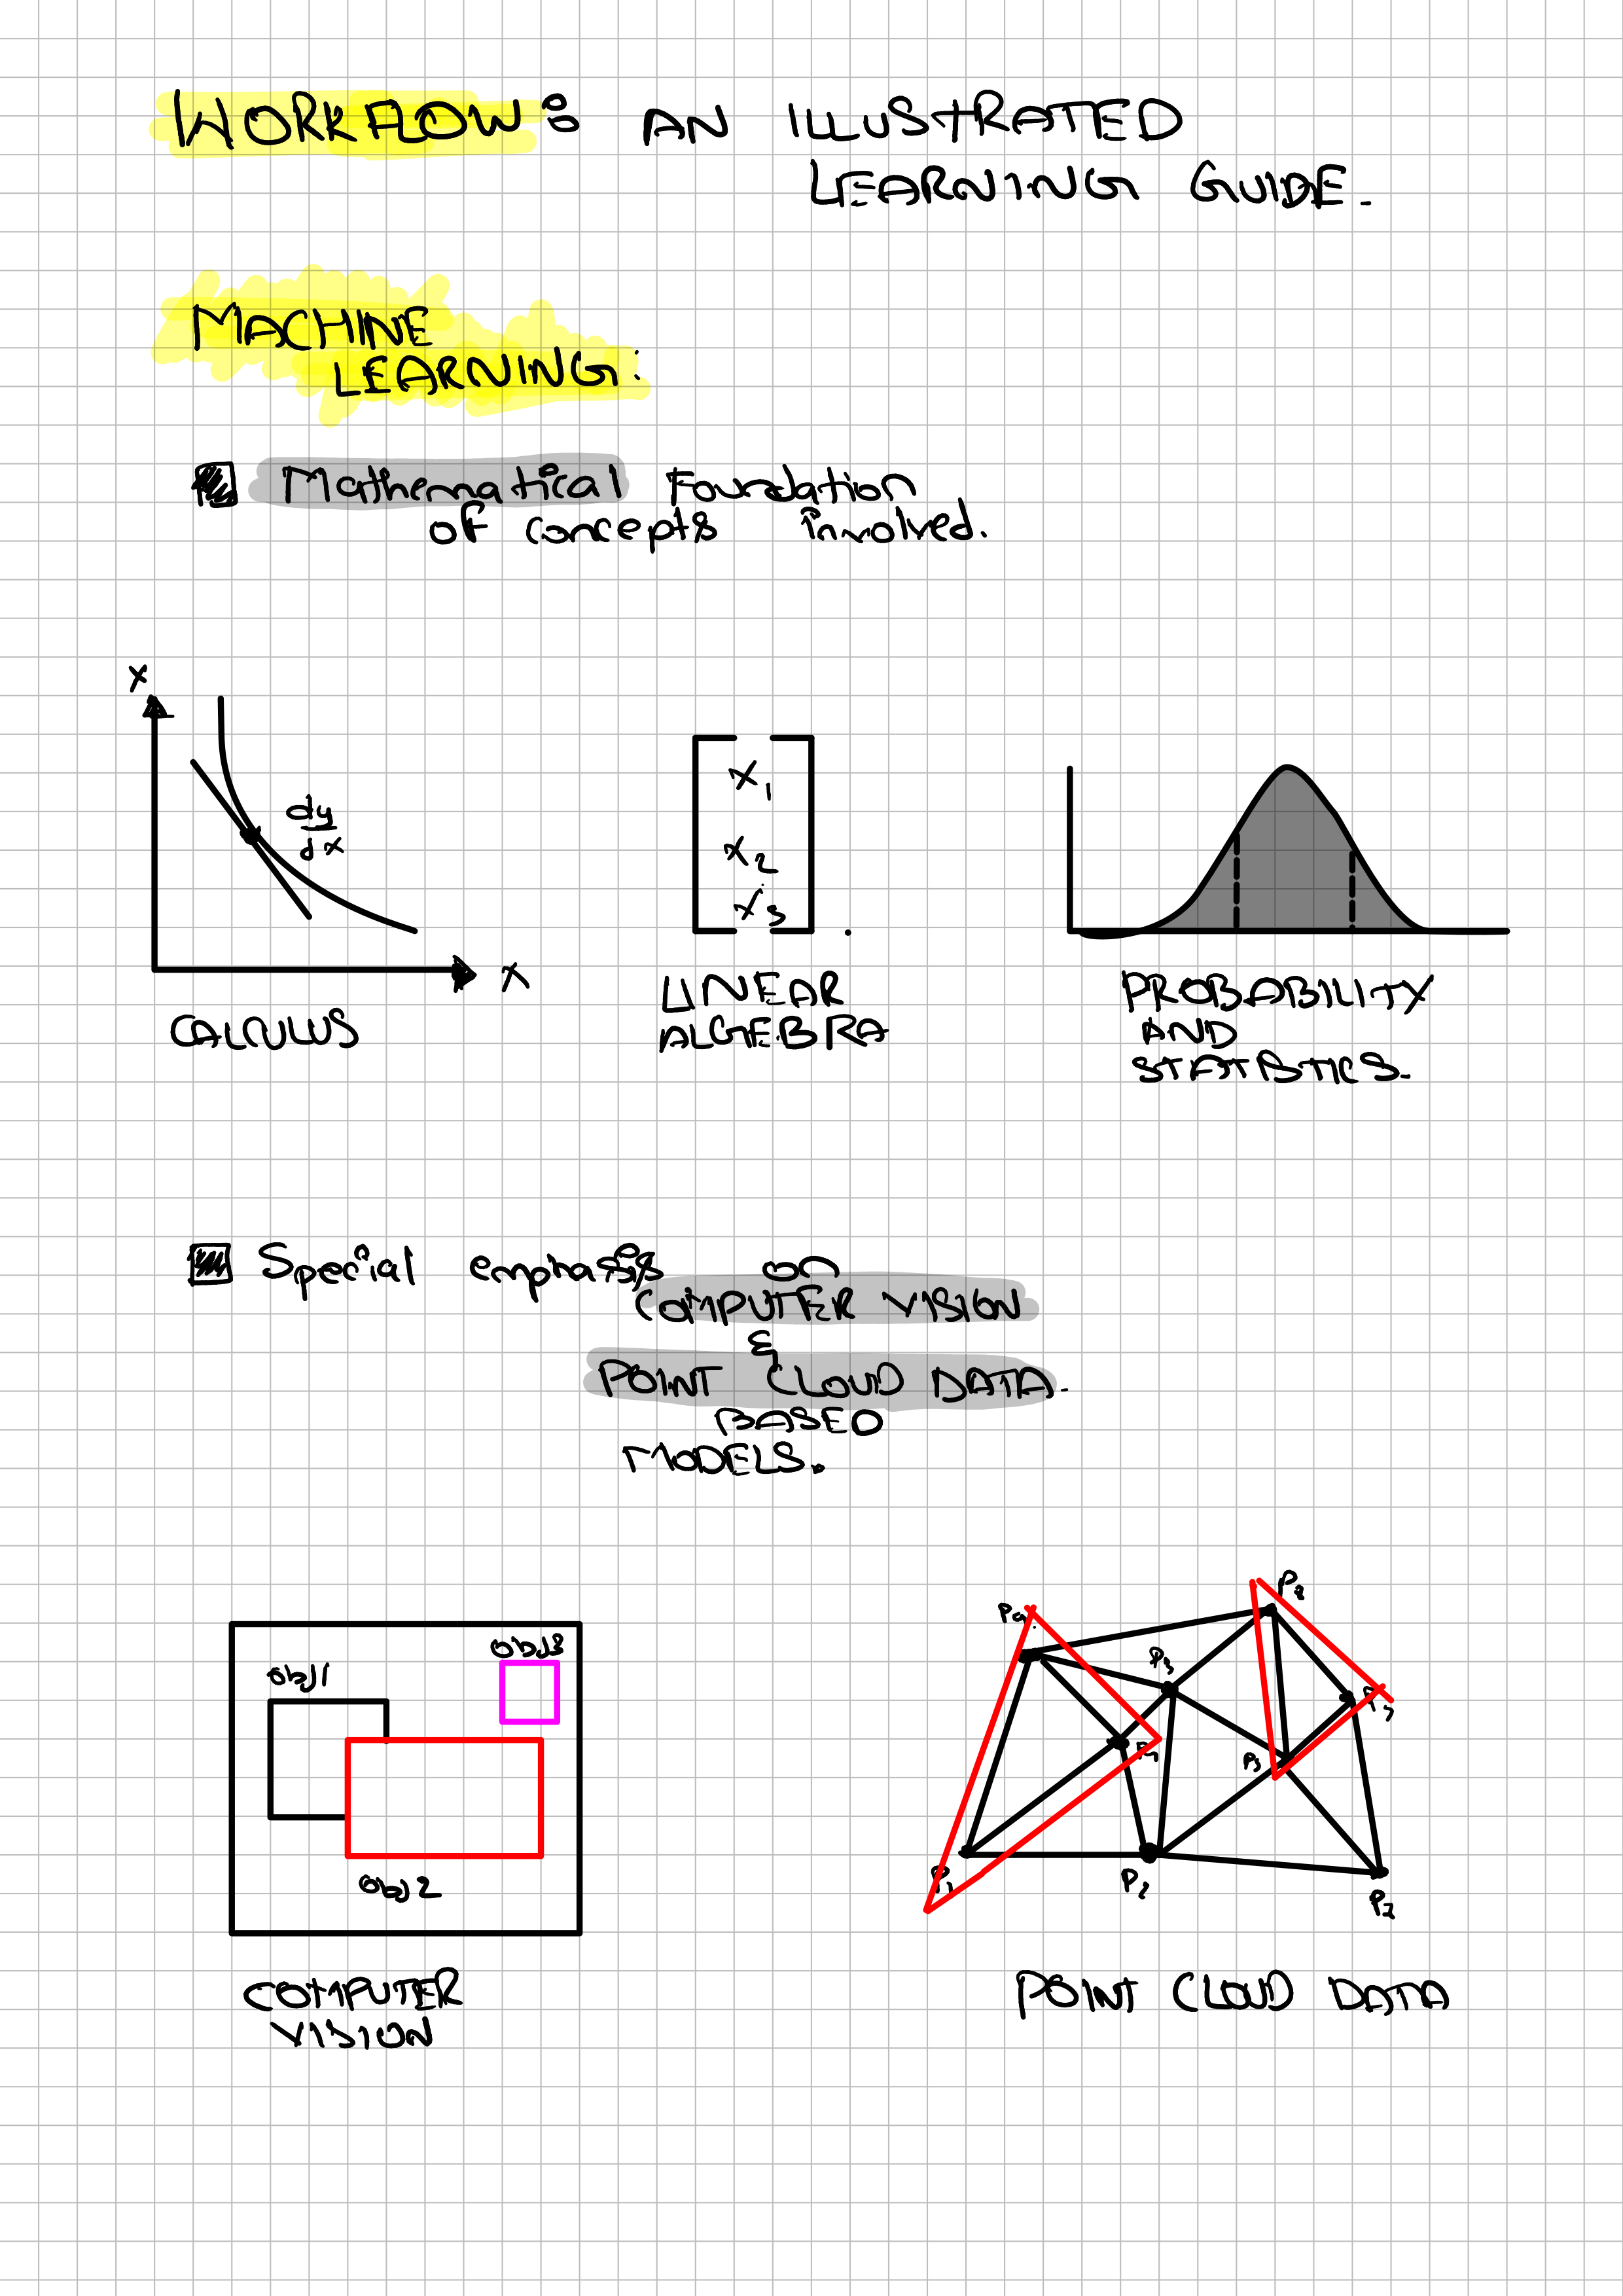 WORKFLOW: AN ILLUSTRATED
LEARNING GUIDE.
MACHINE
LEARNING:
Mathematical Foundation
of concepts involved.
X
dy
dx
X
CALCULUS
X1
X2
X3
LINEAR
ALGEBRA
PROBABILITY
AND
STATISTICS.
Special emphasis on
COMPUTER VISION
&
POINT CLOUD DATA
BASED
MODELS.
obj1
obj3
obj2
COMPUTER
VISION
P3
P1
P2
POINT CLOUD DATA